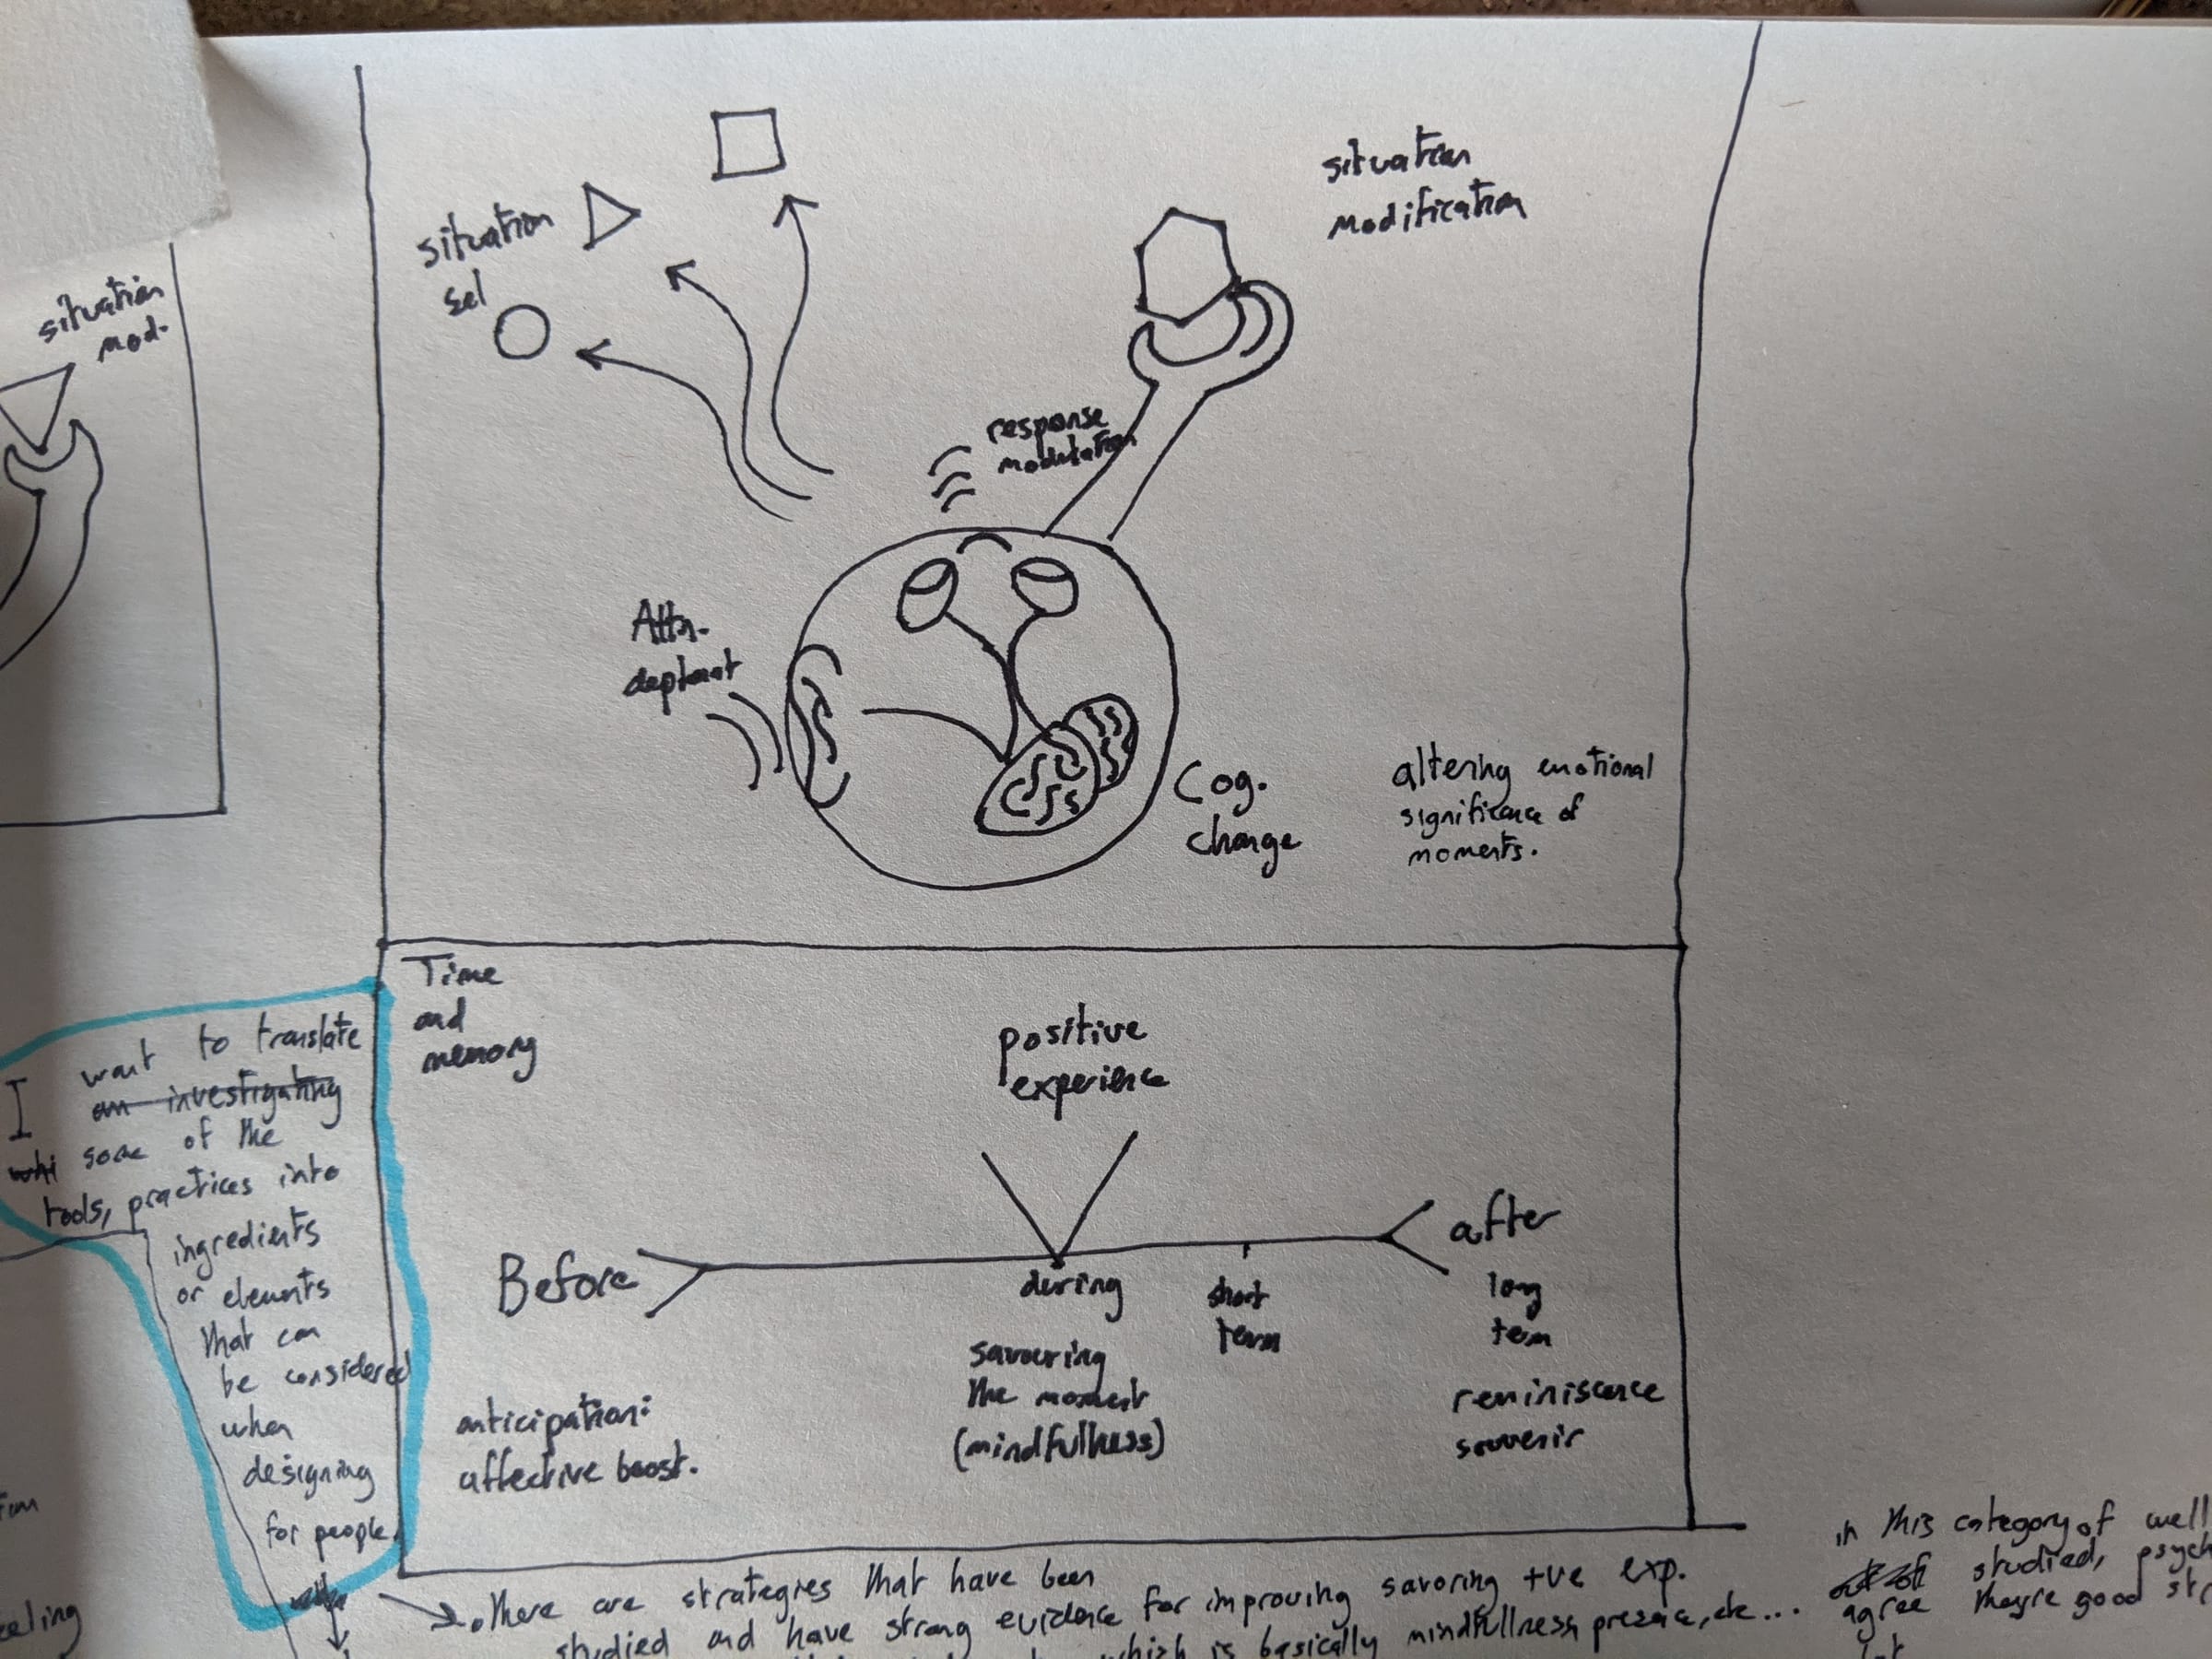 situation
mod.
situation
sel
situation
modification
response
modulation
Attn.
Cog.
change
altering emotional
significance of
moments.
Time
and
memory
positive
experience
Before
during
short
term
after
long
term
anticipation:
affective boost.
savouring
the moment
(mindfulness)
reminiscence
souvenir
I want to translate
am investigating
some of the
tools, practices into
ingredients
or elements
that can
be considered
when
designing
for people.
there are strategies that have been
studied and have strong evidence for improving savoring +ve exp.
which is basically mindfullness, presence, etc...
in this category of well
studied, psych
agree they're good str
eeling